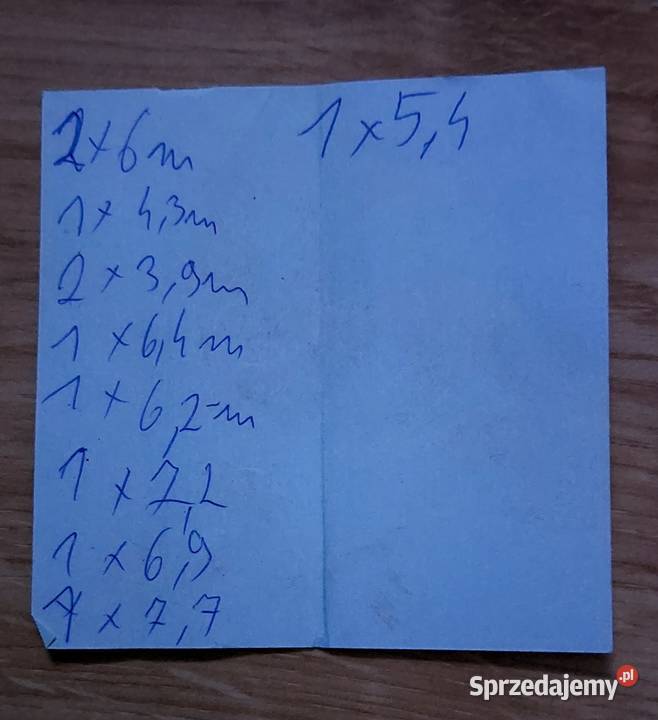 2 x 6 m
1 x 4,3 m
2 x 3,9 m
1 x 6,4 m
1 x 6,2 m
1 x 7,2
1 x 6,9
1 x 7,7
1 x 5,4
Sprzedajemy.pl